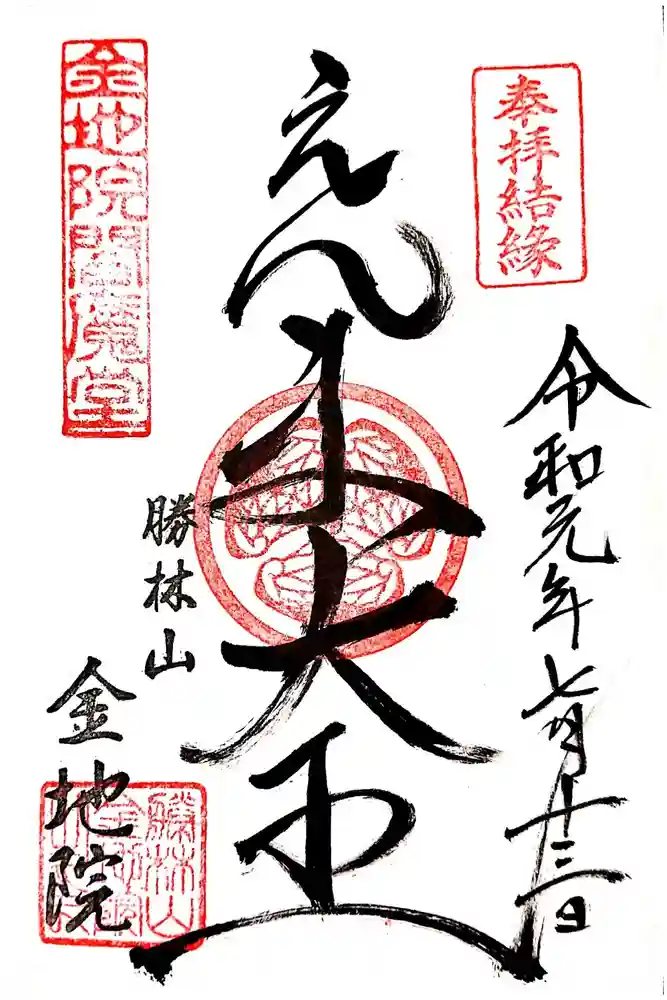 奉拝結縁
令和元年七月十三日
えんま大王
勝林山
金地院
金地院閻魔堂
勝林山